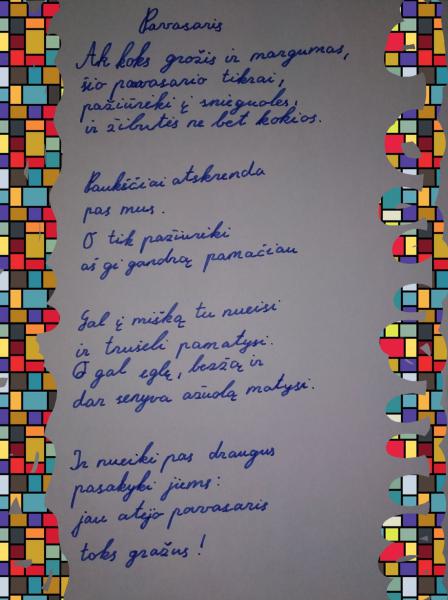 Pavasaris
Ak koks grožis ir margumas,
šio pavasario tikrai,
pažiūrėki į snieguoles,
ir žibutės ne bet kokios.
Paukščiai atskrenda
pas mus.
O tik pažiurėki
aš gi gandrą pamačiau
Gal į mišką tu nueisi
ir triušeli pamatysi.
O gal eglę, beržą ir
dar senyva ąžuolą matysi.
Ir nueiki pas draugus
pasakyki jiems:
jau atėjo pavasaris
toks gražus!